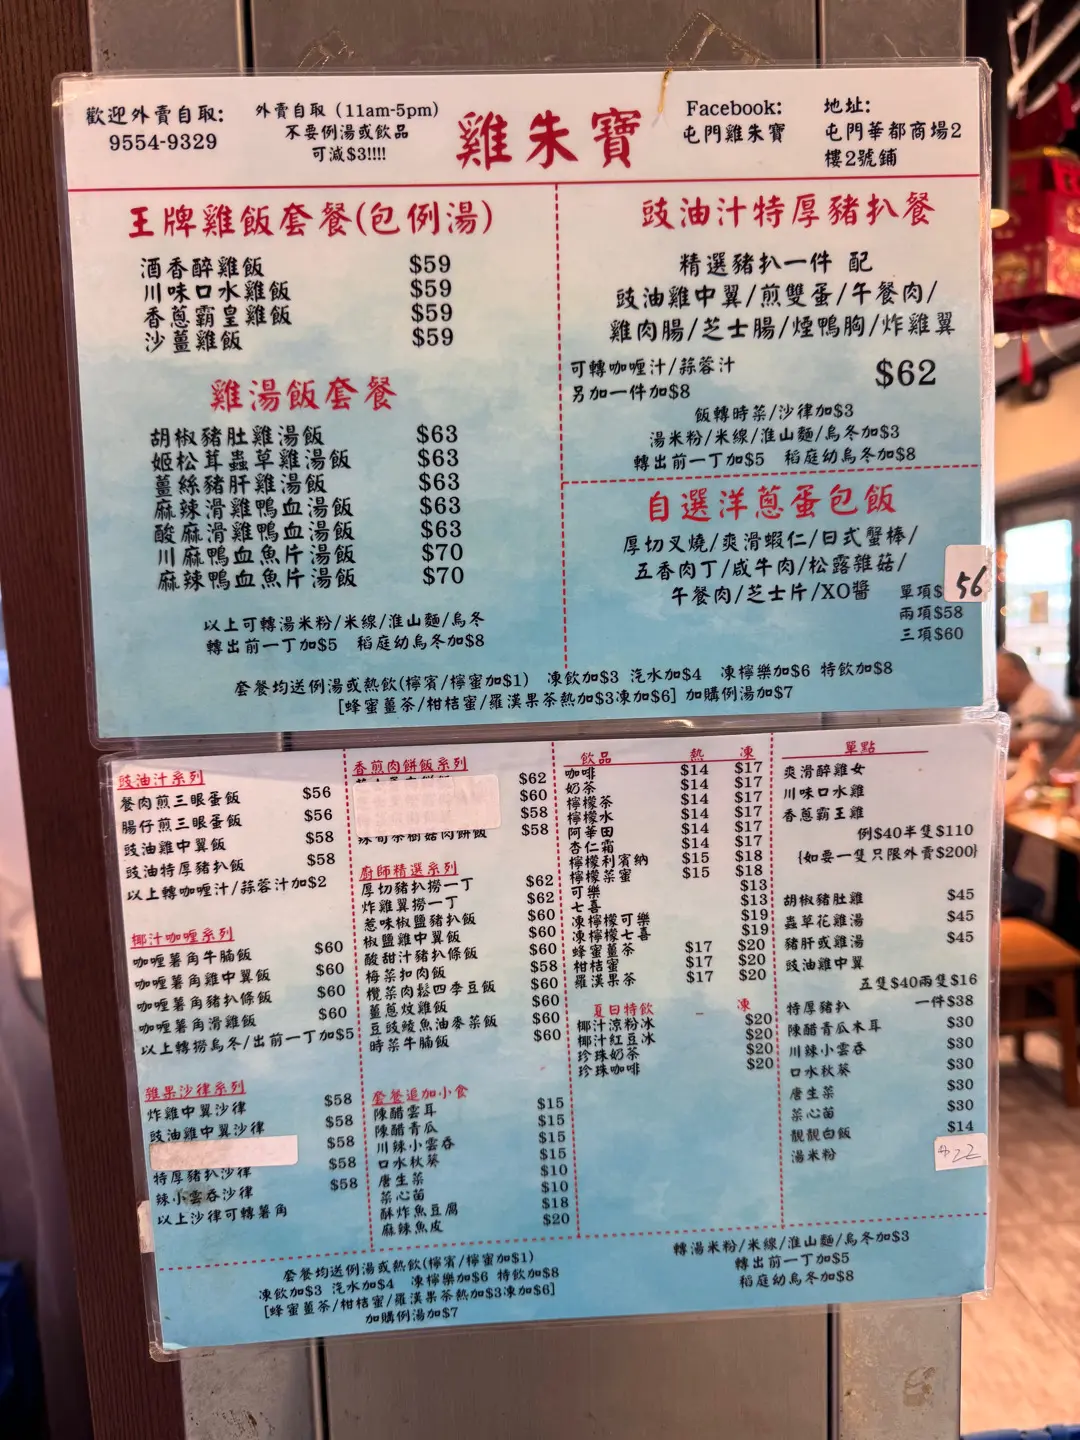 歡迎外賣自取:
9554-9329
外賣自取 (11am-5pm)
不要例湯或飲品
可減$3!!!!
雞朱寶
Facebook:
屯門雞朱寶
地址:
屯門華都商場2
樓2號鋪
王牌雞飯套餐(包例湯)
酒香醉雞飯 $59
川味口水雞飯 $59
香蔥霸皇雞飯 $59
沙薑雞飯 $59
雞湯飯套餐
胡椒豬肚雞湯飯 $63
姬松茸蟲草雞湯飯 $63
薑絲豬肝雞湯飯 $63
麻辣滑雞鴨血湯飯 $63
酸麻滑雞鴨血湯飯 $63
川麻鴨血魚片湯飯 $70
麻辣鴨血魚片湯飯 $70
以上可轉湯米粉/米線/淮山麵/烏冬
轉出前一丁加$5 稻庭幼烏冬加$8
豉油汁特厚豬扒餐
精選豬扒一件 配
豉油雞中翼/煎雙蛋/午餐肉/
雞肉腸/芝士腸/煙鴨胸/炸雞翼
可轉咖喱汁/蒜蓉汁
另加一件加$8
$62
飯轉時菜/沙律加$3
湯米粉/米線/淮山麵/烏冬加$3
轉出前一丁加$5 稻庭幼烏冬加$8
自選洋蔥蛋包飯
厚切叉燒/爽滑蝦仁/日式蟹棒/
五香肉丁/咸牛肉/松露雜菇/
午餐肉/芝士片/XO醬
單項$56
兩項$58
三項$60
套餐均送例湯或熱飲(檸賓/檸蜜加$1) 凍飲加$3 汽水加$4 凍檸樂加$6 特飲加$8
[蜂蜜薑茶/柑桔蜜/羅漢果茶熱加$3凍加$6] 加購例湯加$7
豉油汁系列
餐肉煎三眼蛋飯 $56
腸仔煎三眼蛋飯 $56
豉油雞中翼飯 $58
豉油特厚豬扒飯 $58
以上轉咖喱汁/蒜蓉汁加$2
椰汁咖喱系列
咖喱薯角牛腩飯 $60
咖喱薯角雞中翼飯 $60
咖喱薯角豬扒條飯 $60
咖喱薯角滑雞飯 $60
以上轉撈烏冬/出前一丁加$5
雜果沙律系列
炸雞中翼沙律 $58
豉油雞中翼沙律 $58
$58
特厚豬扒沙律 $58
辣小雲吞沙律 $58
以上沙律可轉薯角
香煎肉餅飯系列
$62
$60
$58
茶樹菇肉餅飯 $58
廚師精選系列
厚切豬扒撈一丁 $62
炸雞翼撈一丁 $62
惹味椒鹽豬扒飯 $60
椒鹽雞中翼飯 $60
酸甜汁豬扒條飯 $60
梅菜扣肉飯 $58
欖菜肉鬆四季豆飯 $60
薑蔥炆雞飯 $60
豆豉鯪魚油麥菜飯 $60
時菜牛腩飯 $60
套餐追加小食
陳醋雲耳 $15
陳醋青瓜 $15
川辣小雲吞 $15
口水秋葵 $15
唐生菜 $10
菜心苗 $10
酥炸魚豆腐 $18
麻辣魚皮 $20
飲品 熱 凍
咖啡 $14 $17
奶茶 $14 $17
檸檬茶 $14 $17
檸檬水 $14 $17
阿華田 $14 $17
杏仁霜 $14 $17
檸檬利賓納 $15 $18
檸檬菜蜜 $15 $18
可樂 $13
七喜 $13
凍檸檬可樂 $19
凍檸檬七喜 $19
蜂蜜薑茶 $17 $20
柑桔蜜 $17 $20
羅漢果茶 $17 $20
夏日特飲 凍
椰汁涼粉冰 $20
椰汁紅豆冰 $20
珍珠奶茶 $20
珍珠咖啡 $20
單點
爽滑醉雞女
川味口水雞
香蔥霸王雞
例$40半隻$110
{如要一隻只限外賣$200}
胡椒豬肚雞 $45
蟲草花雞湯 $45
豬肝或雞湯 $45
豉油雞中翼
五隻$40兩隻$16
特厚豬扒 一件$38
陳醋青瓜木耳 $30
川辣小雲吞 $30
口水秋葵 $30
唐生菜 $30
菜心苗 $30
靚靚白飯 $14
湯米粉 $22
套餐均送例湯或熱飲(檸賓/檸蜜加$1)
凍飲加$3 汽水加$4 凍檸樂加$6 特飲加$8
[蜂蜜薑茶/柑桔蜜/羅漢果茶熱加$3凍加$6]
加購例湯加$7
轉湯米粉/米線/淮山麵/烏冬加$3
轉出前一丁加$5
稻庭幼烏冬加$8